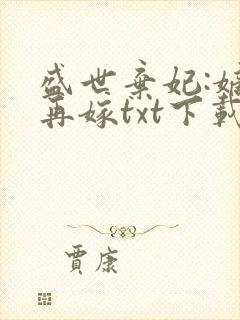 盛世棄妃:嫡
再嫁txt下載
賈康